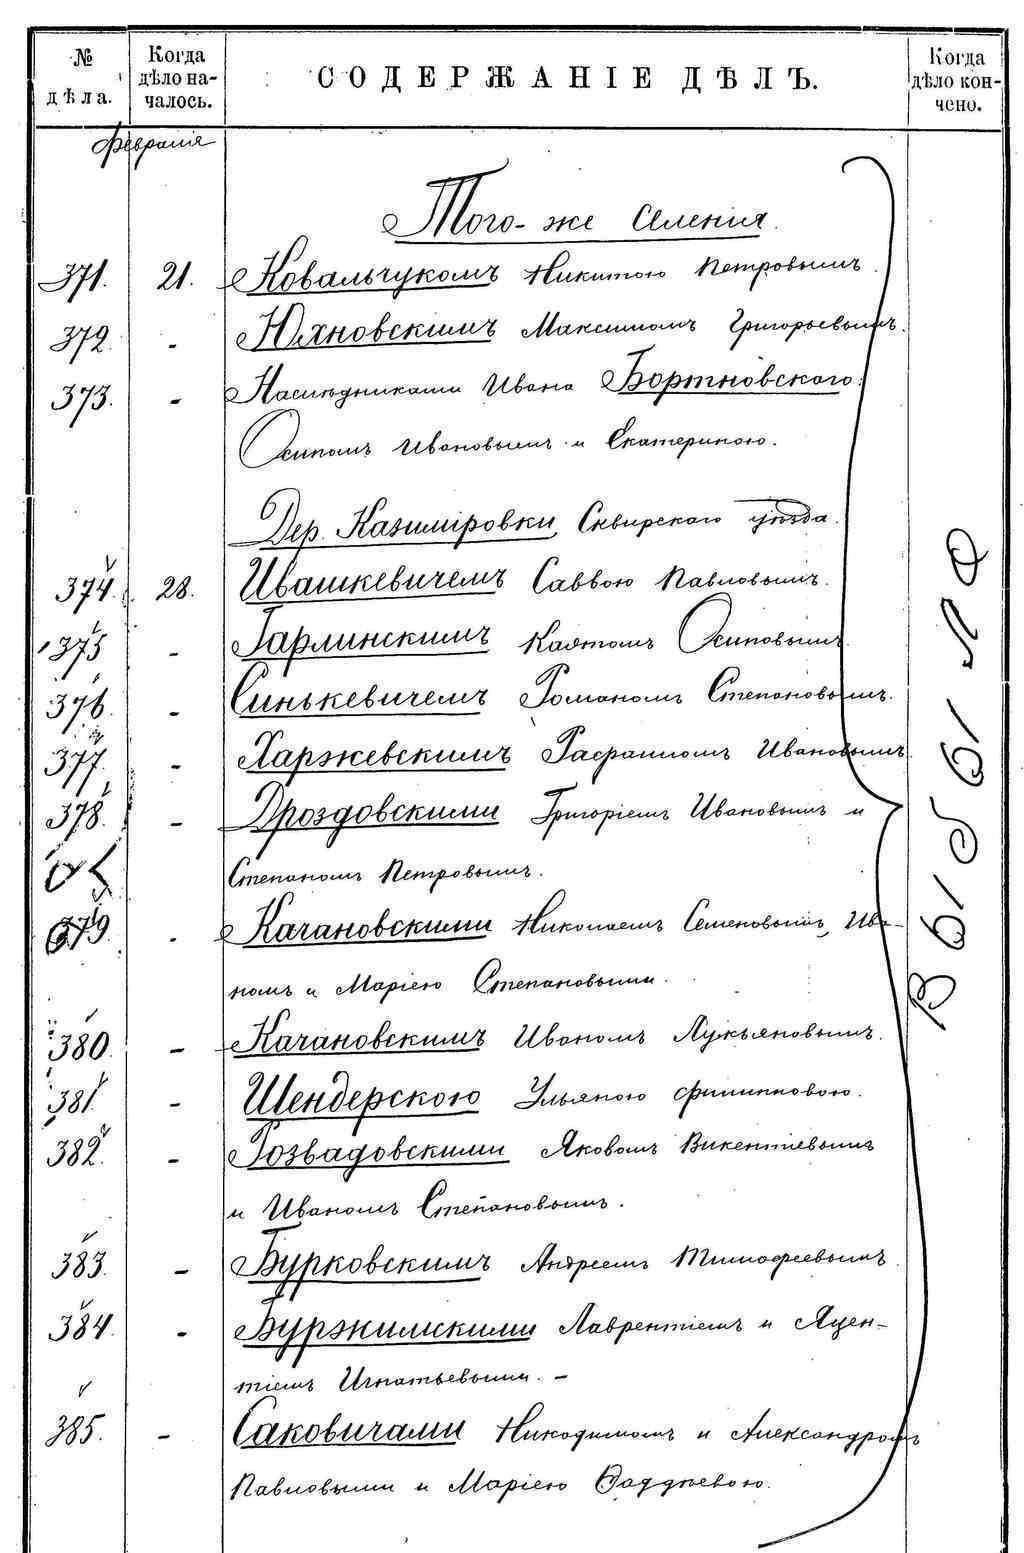 № дѣла.
Когда дѣло началось.
СОДЕРЖАНІЕ ДѢЛЪ.
Когда дѣло кончено.
Февраля
Того-же селенія.
371. 21. Ковальчукомъ Никитою Петровымъ.
372. - Юхновскимъ Максимомъ Григорьевымъ.
373. - Наслѣдниками Ивана Бортновского:
Осипомъ Ивановымъ и Екатериною.
Дер. Казиміровки, Сквирскаго уѣзда.
374. 28. Ивашкевичемъ Саввою Павловымъ.
375 - Гарлинскимъ Каэтомъ Осиповымъ
376. - Синькевичемъ Романомъ Степановымъ.
377. - Харжевскимъ Рафаиломъ Ивановымъ
378. - Дроздовскими Григоріемъ Ивановымъ и
Степаномъ Петровымъ.
379. - Качановскими Николаемъ Семеновымъ, Ива-
номъ и Маріею Степановыми.
380. - Качановскимъ Иваномъ Лукьяновымъ.
381. - Шендерскою Ульяною Филипповою.
382. - Розвадовскими Яковомъ Викентіевымъ
и Иваномъ Степановымъ.
383. - Бурковскимъ Андреемъ Тимофеевымъ.
384. - Буржимскими Лаврентіемъ и Яцен-
тіемъ Игнатьевыми. -
385. - Саковичами Никодимомъ и Александромъ
Павловыми и Маріею Фаддѣевою.
Выбыло